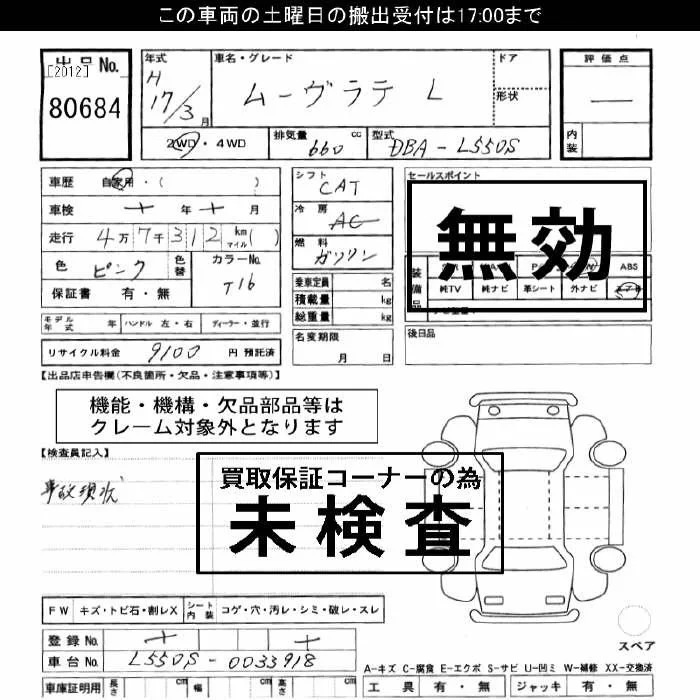 この車両の土曜日の搬出受付は17:00まで
出品No.
[2012]
80684
年式 H 17/3 月
車名・グレード
ムーヴラテ L
ドア
形状
評価点
—
内装
2WD・4WD
排気量 660 cc
型式 DBA-L550S
車歴 自家用・( )
車検 年 月
走行 4万7千312 km マイル( )
色 ピンク
色替
カラーNo. T16
保証書 有・無
シフト CAT
冷房 AC
燃料 ガソリン
乗車定員 名
積載量 kg
総重量 kg
セールスポイント
無効
装備品
ABS
純TV 純ナビ 革シート 外ナビ
モデル年式 年 ハンドル 左・右 ディーラー・並行
名変期限
月 日
後日品
リサイクル料金 9100 円 預託済
【出品店申告欄(不良箇所・欠品・注意事項等)】
機能・機構・欠品部品等は
クレーム対象外となります
【検査員記入】
事故現状
買取保証コーナーの為
未検査
FW キズ・トビ石・割レX シート内装 コゲ・穴・汚レ・シミ・破レ・スレ
登録No.
車台No. L550S-0033918
車庫証明用 長さ cm 幅 cm 高さ cm
スペア
A-キズ C-腐食 E-エクボ S-サビ U-凹ミ W-補修 XX-交換済
工具 有・無 ジャッキ 有・無